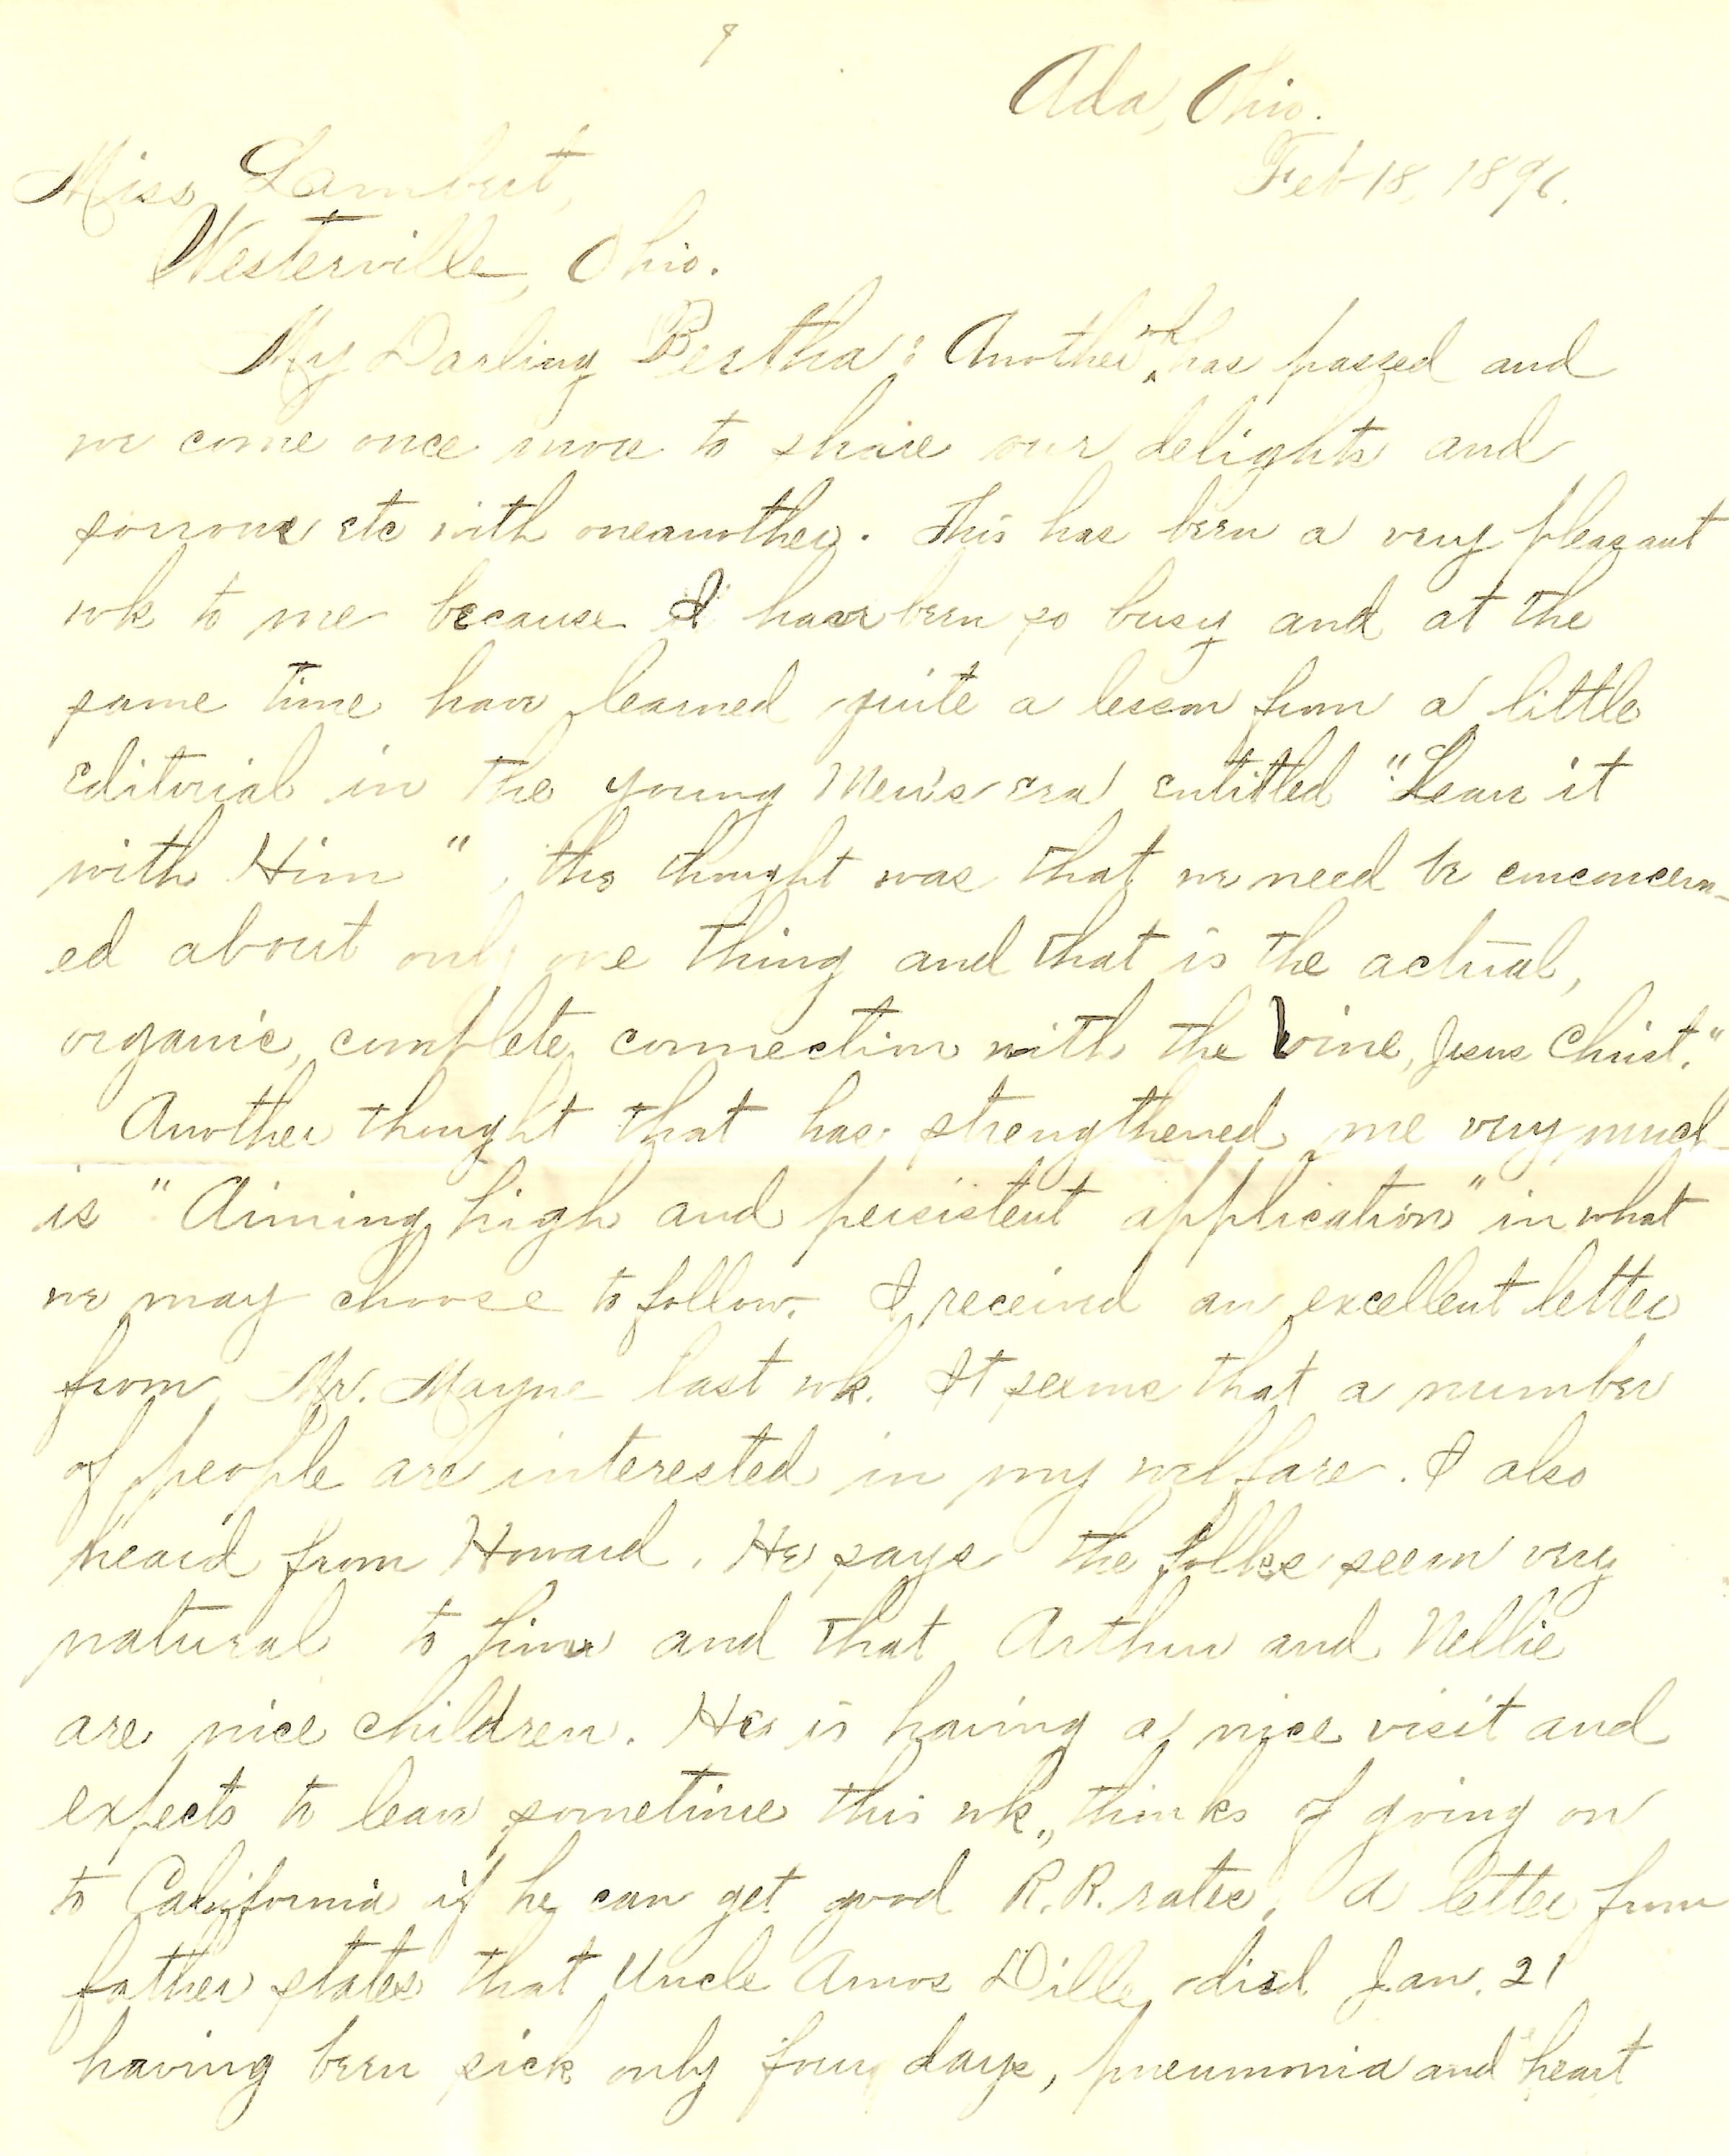 Ada, Ohio.
Feb 18, 1896.
Miss Lambert,
Westerville, Ohio.
My Darling Bertha: Another wk has passed and
we come once more to share our delights and
sorrows etc with oneanother. This has been a very pleasant
wk to me because I have been so busy and at the
same time have learned quite a lesson from a little
editorial in the young Men's era entitled "Leave it
with Him", the thought was that we need be conconcern-
ed about only one thing and that is the actual,
organic, complete connection with the Vine, Jesus Christ."
Another thought that has strengthened me very much
is "Aiming high and persistent application" in what
we may choose to follow. I received an excellent letter
from Mr. Mayne last wk. It seems that a number
of people are interested in my welfare. I also
heard from Howard. He says the folks seem very
natural to him and that Arthur and Nellie
are nice children. He is having a nice visit and
expects to leave sometime this wk., thinks of going on
to California if he can get good R.R. rates. A letter from
father states that Uncle Amos Dille died Jan. 21
having been sick only four days, pneumonia and heart